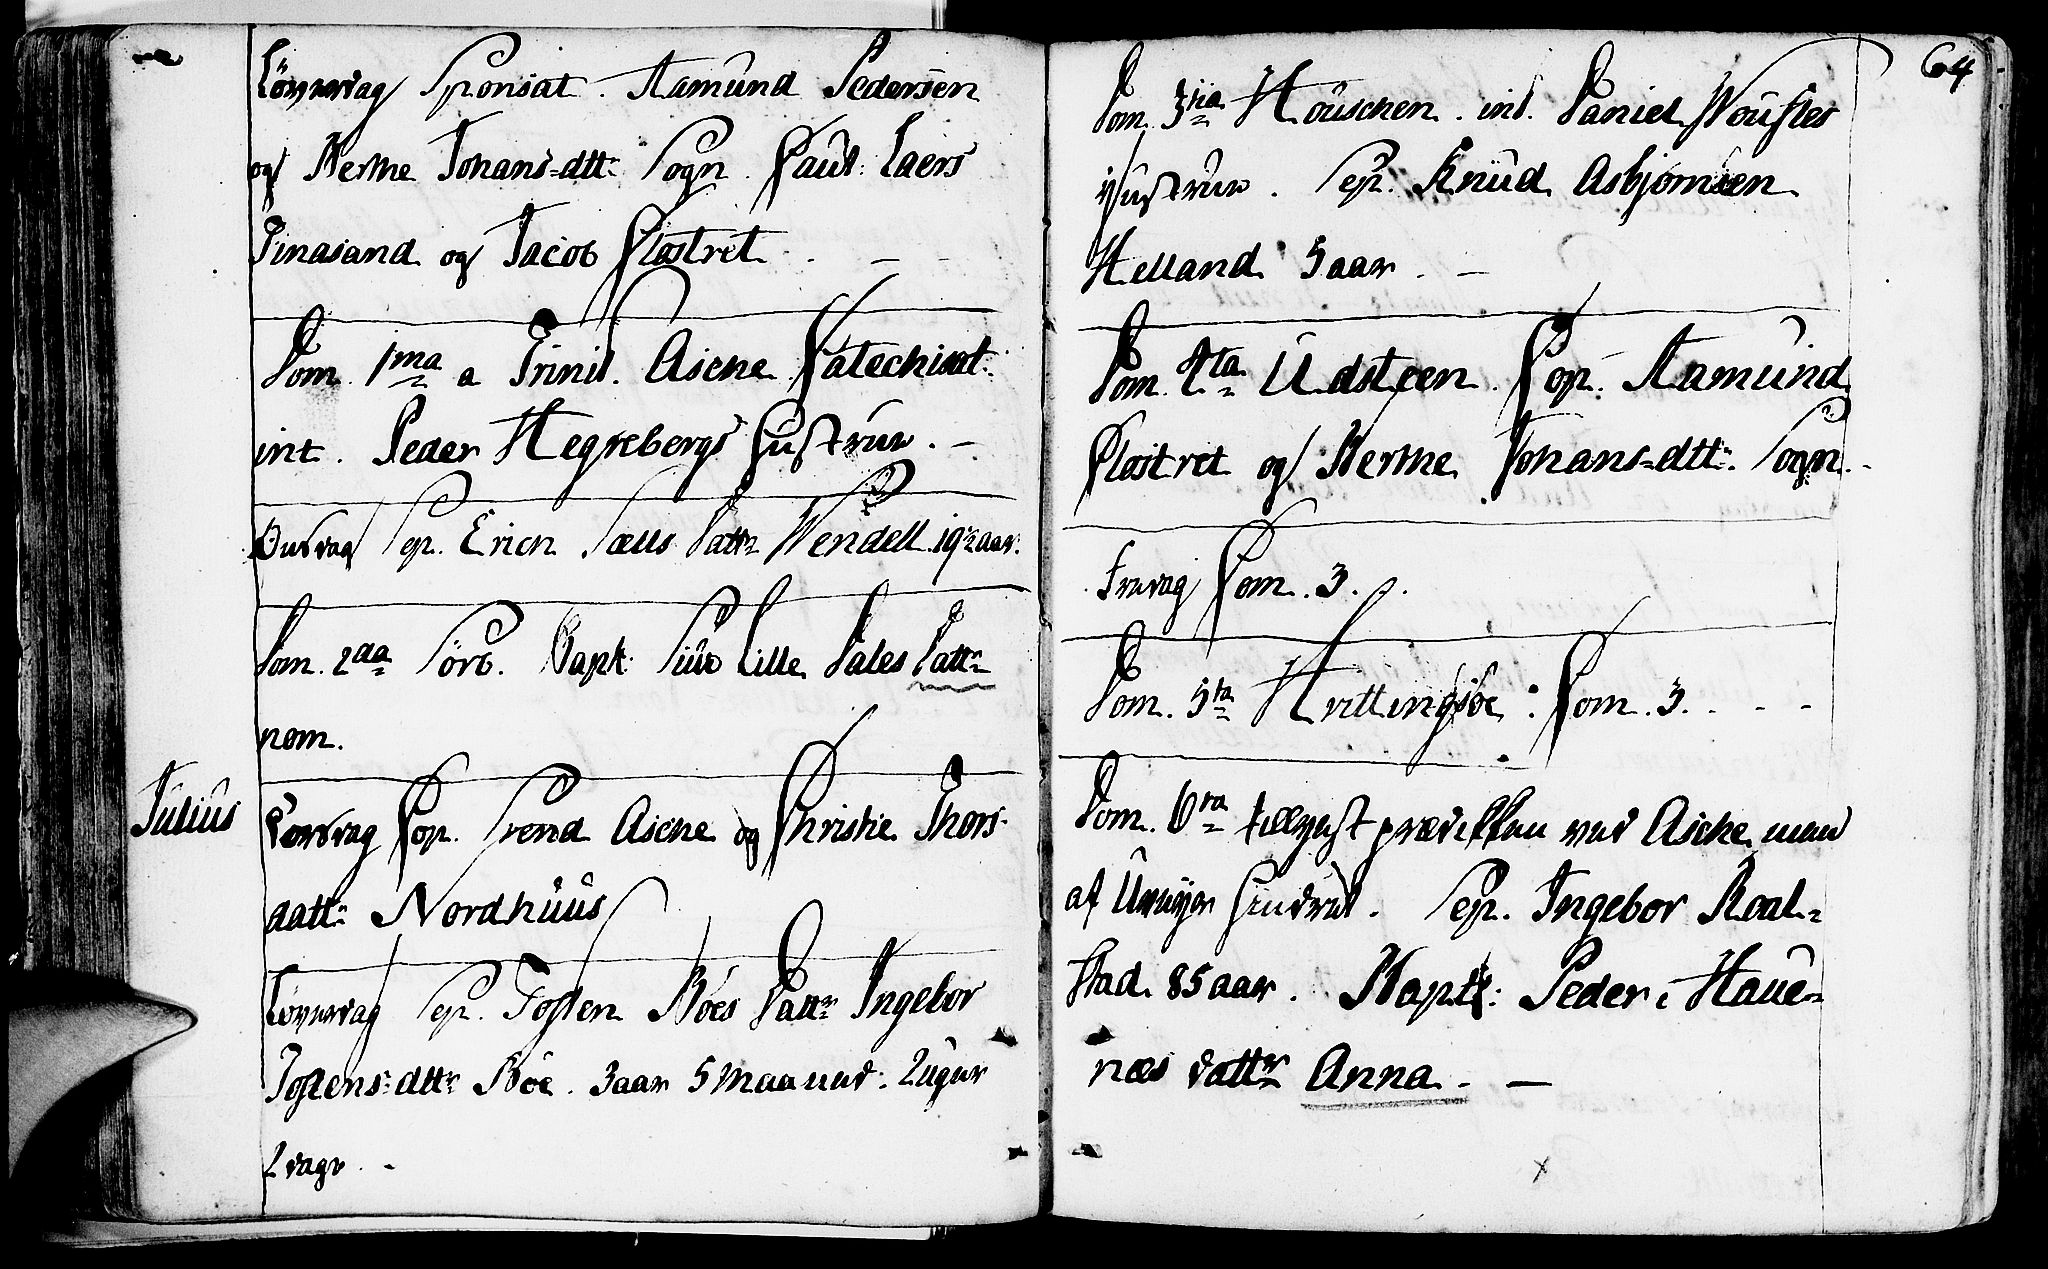 Löverdag Sponsat. Aamund Pedersen
og Merthe Johans=dtt. Sogn. Caut: Laers
Tinasand og Jacob Clostret
Dom. 1ma a Trinit. Aschе Catechisat:
int. Peder Hegrebergs Hustrue.
Onsdag Sep. Erich Datt Wendell 19 aar.
Dom. 2da Sörb. Bapt: Lille Dales Datt
nom.
Julius
Torsdag Cop. Svend Asche og Christie Thors-
datt Nordhuus
Löverdag Sep. Tosten Böes Datt Ingebor
Tostens=dtt: Böe. 3 aar 5 Maaned: 2 Uger
2 dage.
64
Dom. 3tia Houschen. int. Daniel
Hustrue. Sep. Knud Asbjörnsen
Helland 5 aar.
Dom. 4ta Udsteen. Cop. Aamund
Clostret og Merthe Johans=dtt. Sogn.
Fredag Com. 3.
Dom. 5ta Hvittingsöe: Com. 3.
Dom. 6ta tillyst prædikken ved Asche men
af Uveyer hindret. Sep. Ingebor Roal=
stad 85 aar. Bapt: Peder i Haue=
næs datt Anna.